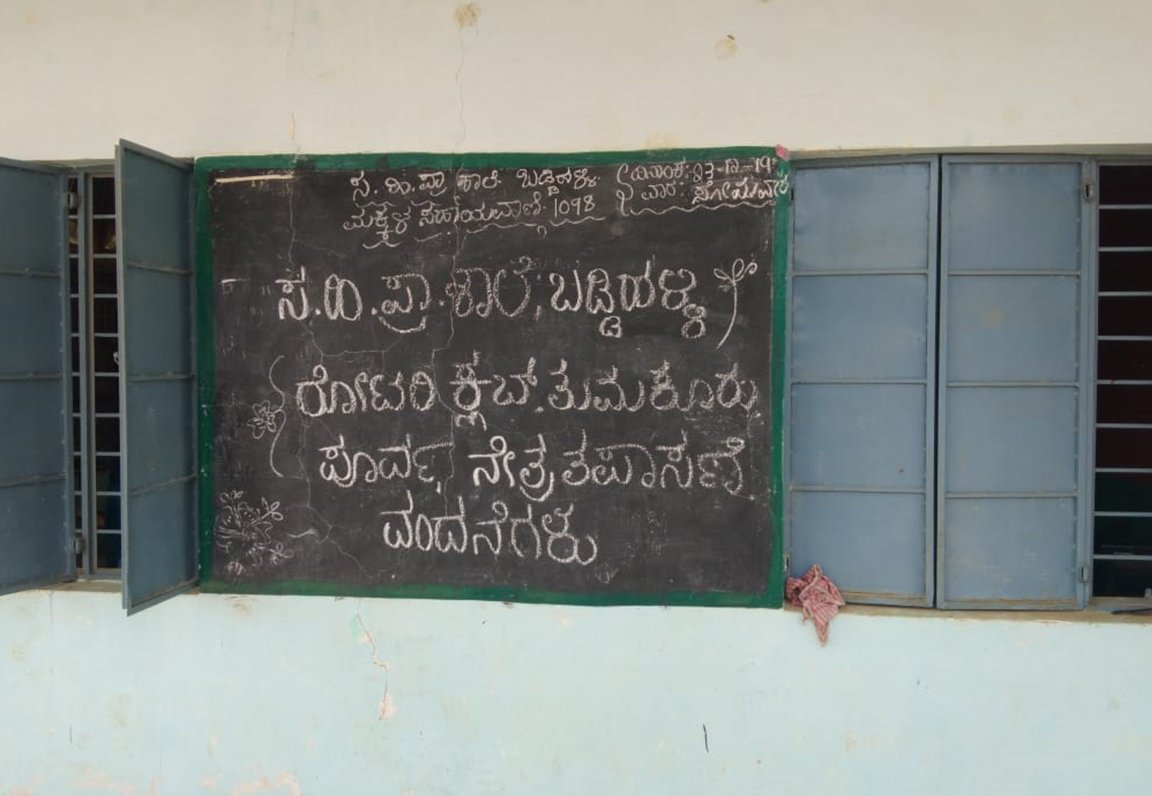 ಸ.ಹಿ.ಪ್ರಾ ಶಾಲೆ ಬಡ್ಡಿಹಳ್ಳಿ
ಮಕ್ಕಳ ಸಹಾಯವಾಣಿ 1098
ದಿನಾಂಕ:
ವಾರ: ಸೋಮವಾರ
ಸ.ಹಿ.ಪ್ರಾ.ಶಾಲೆ, ಬಡ್ಡಿಹಳ್ಳಿ
ರೋಟರಿ ಕ್ಲಬ್. ತುಮಕೂರು
ಪೂರ್ವ, ನೇತ್ರ ತಪಾಸಣೆ
ವಂದನೆಗಳು